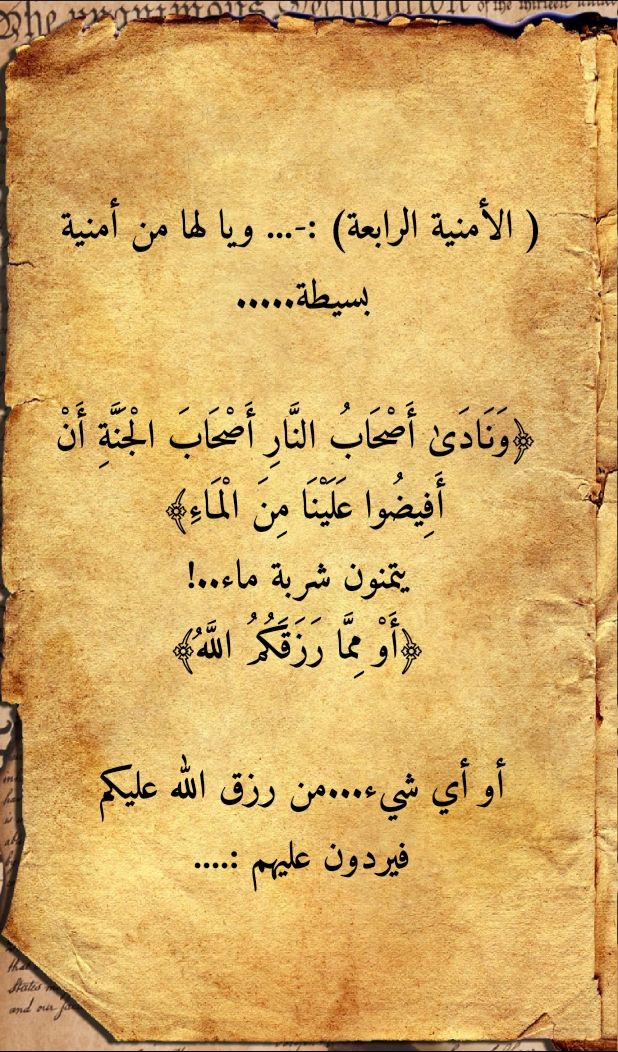 The unanimous Declaration of the thirteen united
( الأمنية الرابعة) :-... ويا لها من أمنية
بسيطة.....
﴿وَنَادَىٰ أَصْحَابُ النَّارِ أَصْحَابَ الْجَنَّةِ أَنْ
أَفِيضُوا عَلَيْنَا مِنَ الْمَاءِ﴾
يتمنون شربة ماء..!
﴿أَوْ مِمَّا رَزَقَكُمُ اللَّهُ﴾
أو أي شيء...من رزق الله عليكم
فيردون عليهم :....
that
States
and our